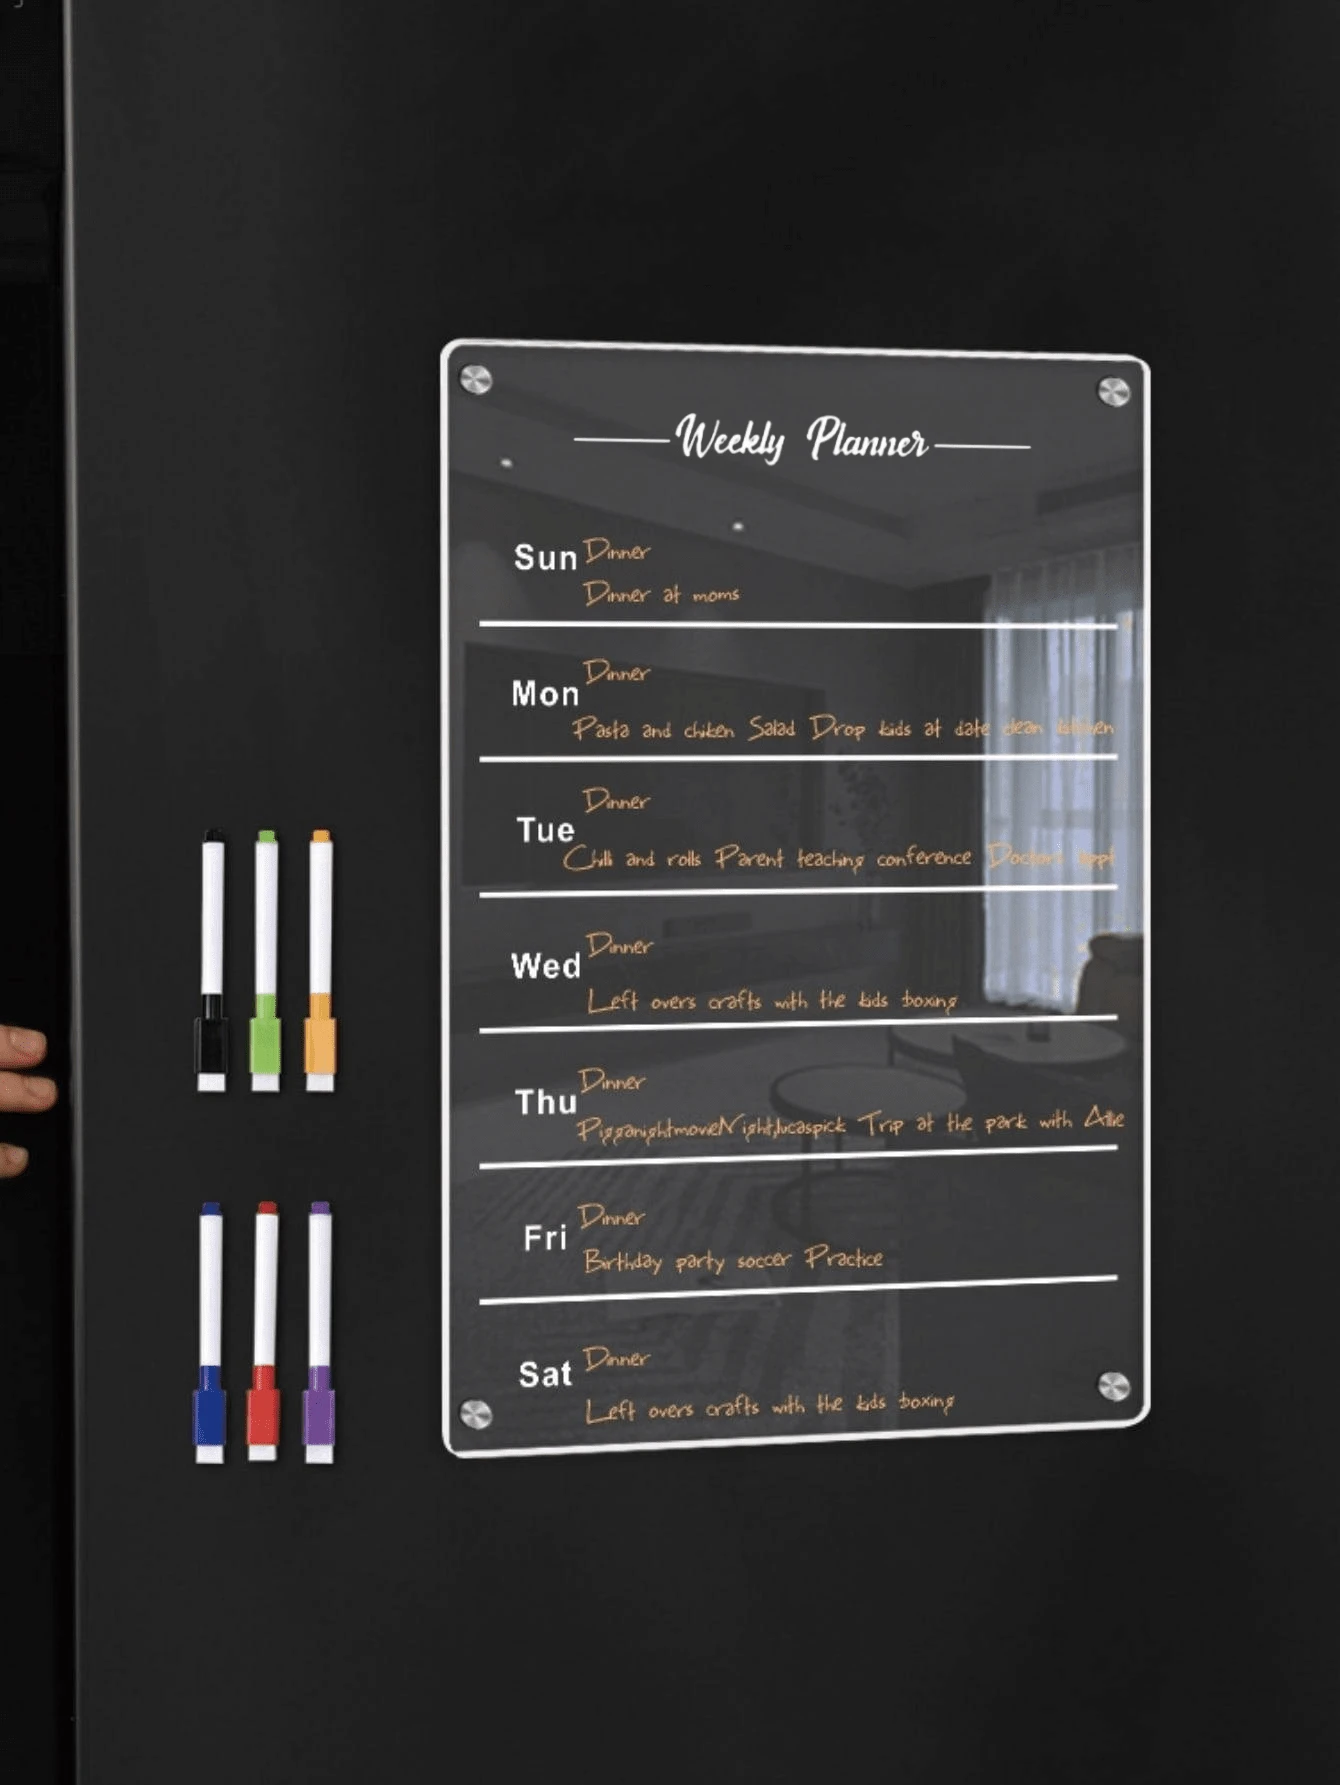 Weekly Planner
Sun Dinner
Dinner at moms
Mon Dinner
Pasta and chiken Salad Drop kids at date clean kitchen
Tue Dinner
Chilli and rolls Parent teaching conference Doctors appt
Wed Dinner
Left overs crafts with the kids boxing
Thu Dinner
Trip at the park with Allie
Fri Dinner
Birthday party soccer Practice
Sat Dinner
Left overs crafts with the kids boxing